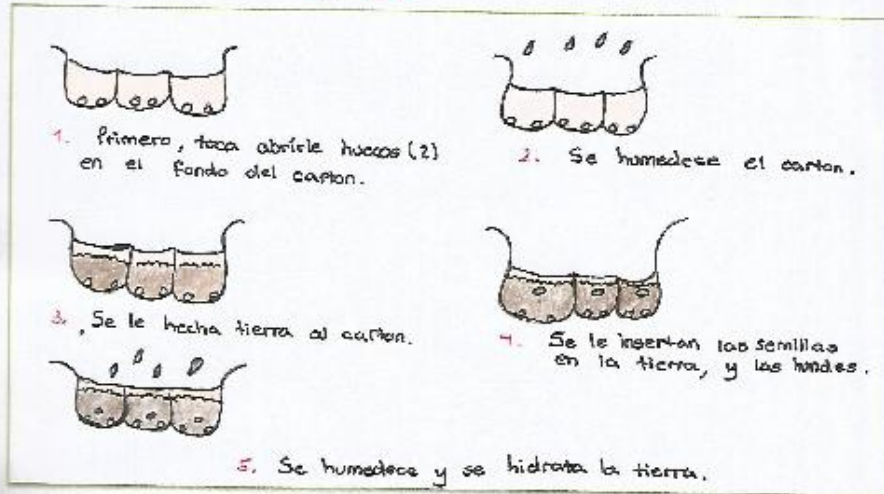 1. Primero, toca abrirle huecos (2)
en el fondo del carton.
2. Se humedese el carton.
3. , Se le hecha tierra al carton.
4. Se le insertan las semillas
en la tierra, y las hundes.
5. Se humedece y se hidrata la tierra.